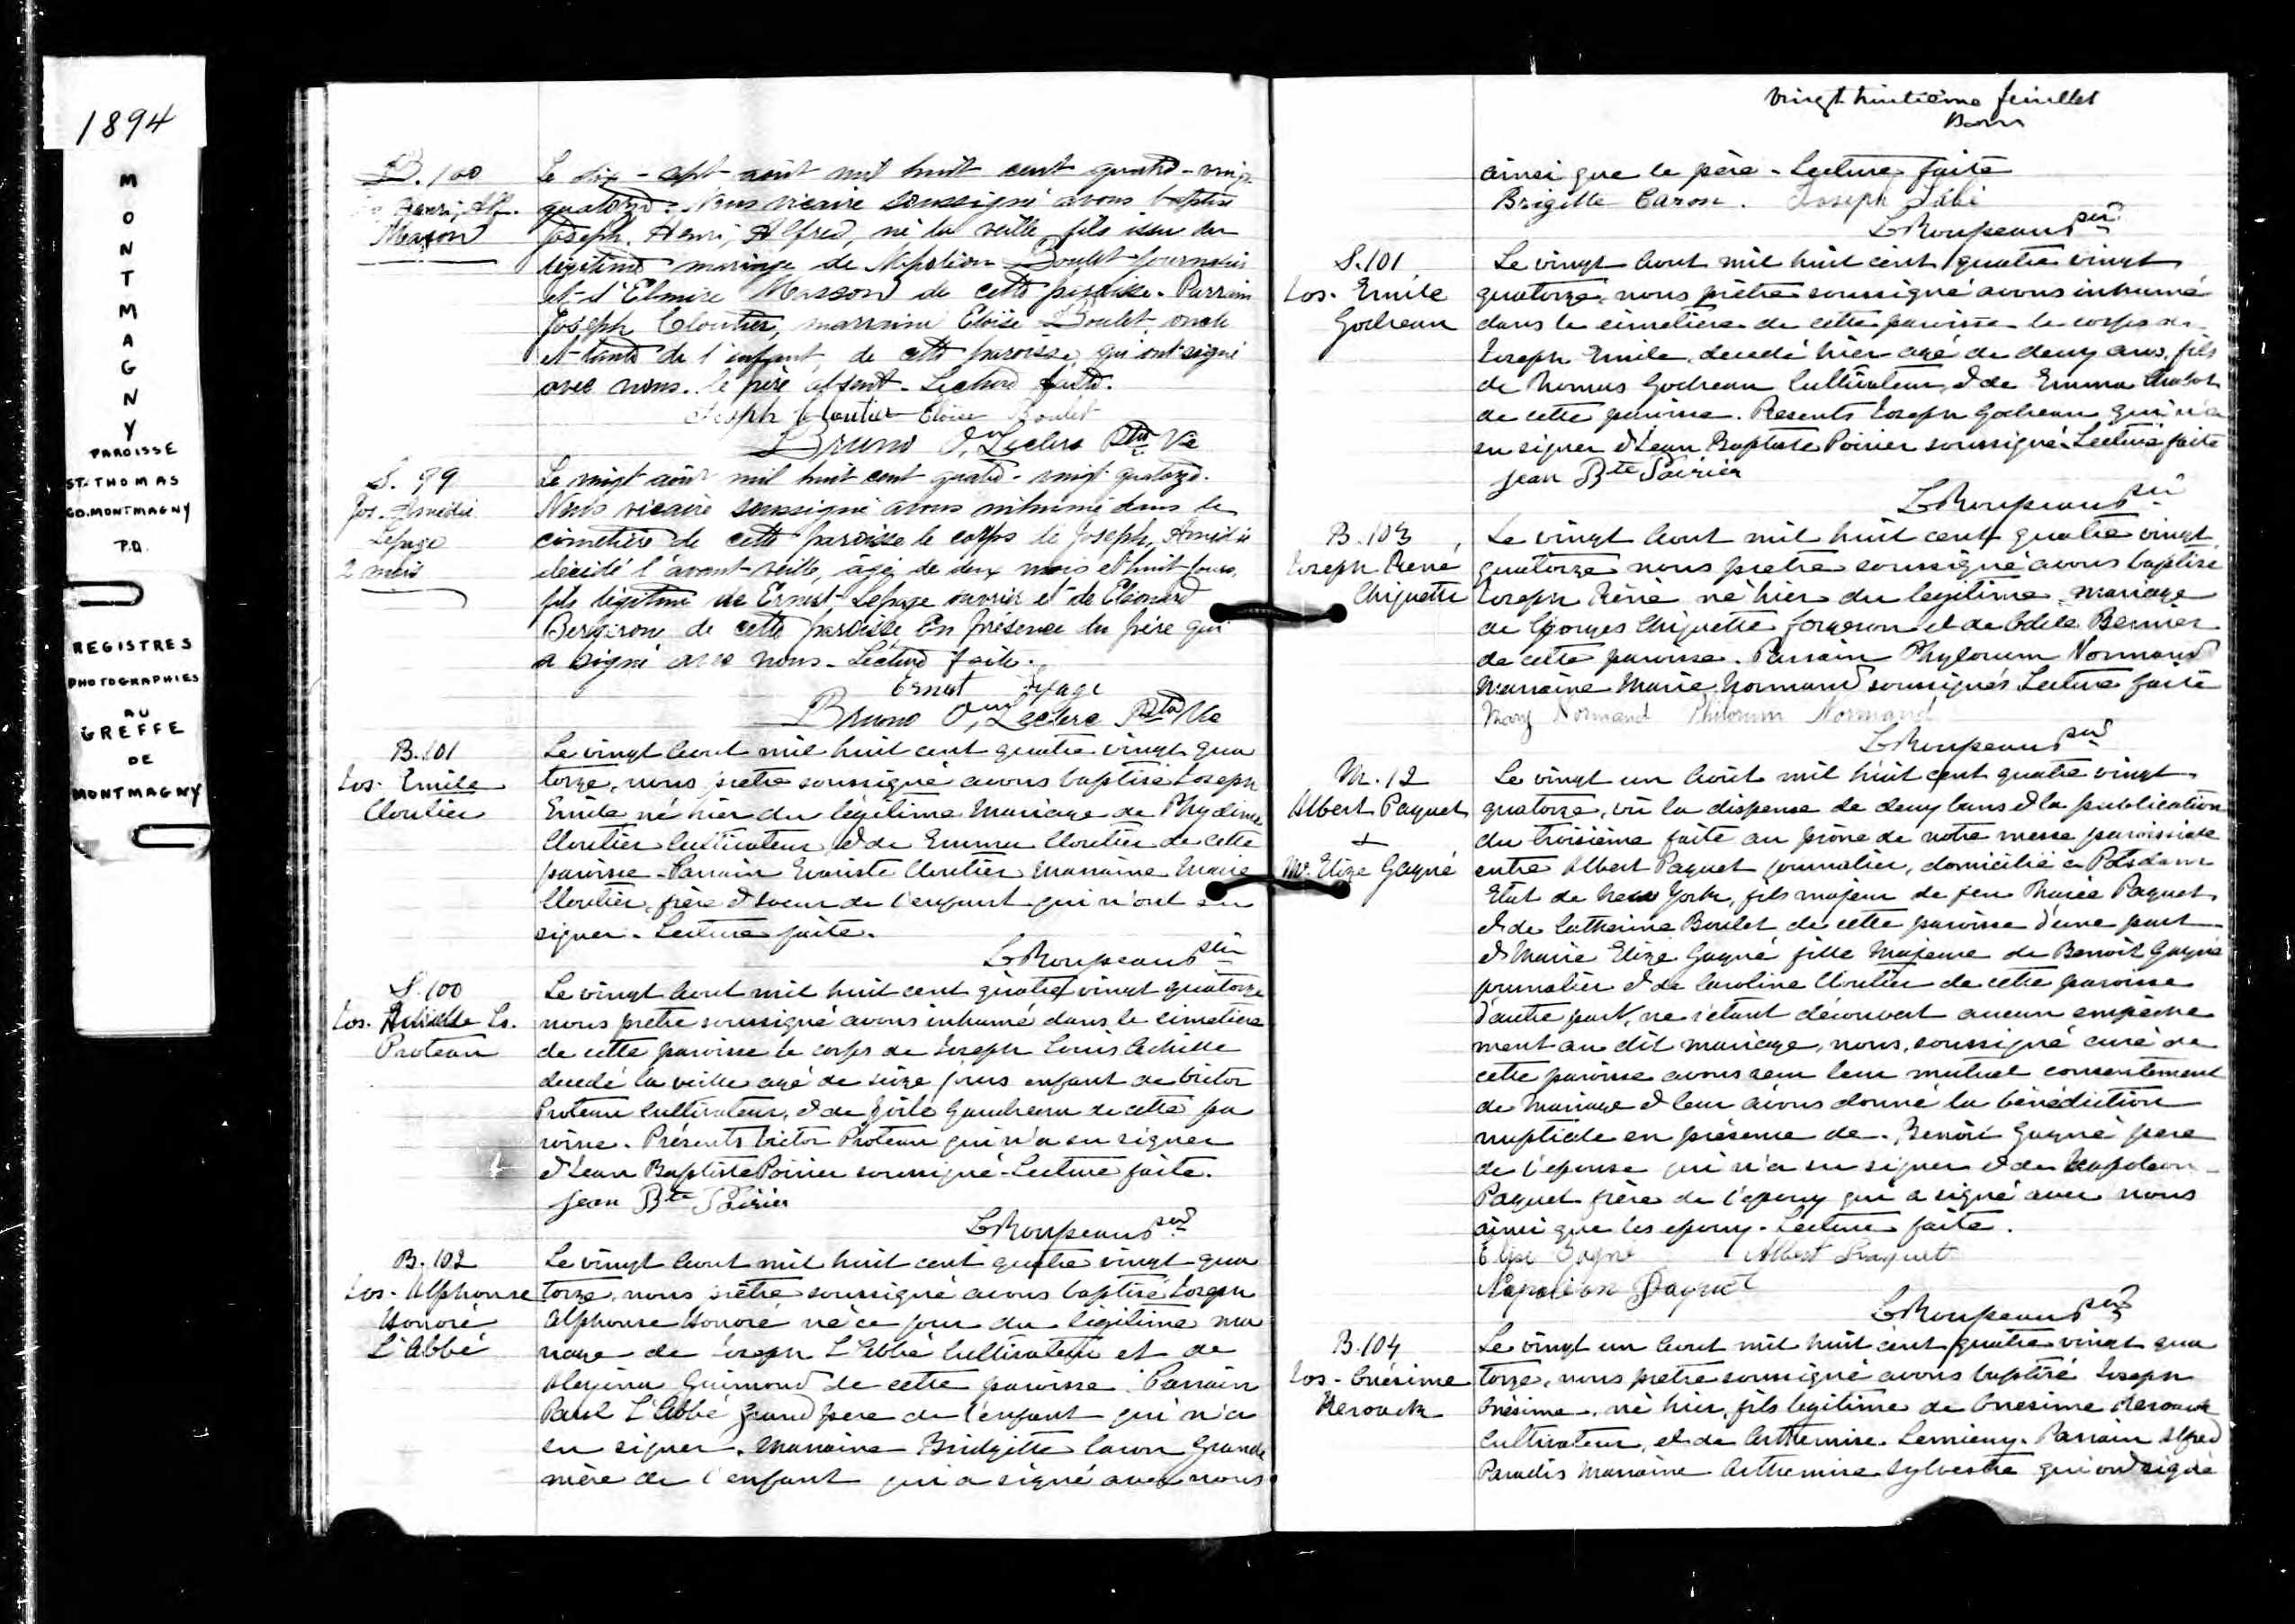 1894
MONTMAGNY
PAROISSE
ST-THOMAS
CO.MONTMAGNY
P.Q.
REGISTRES
PHOTOGRAPHIES
AU
GREFFE
DE
MONTMAGNY
B. 100
Henri, Alf.
Masson
Le dix-sept août mil huit cent quatre-vingt
quatorze. Nous vicaire soussigné avons baptisé
Joseph, Henri, Alfred, né la veille, fils issu du
légitime mariage de Napoléon Boulet journalier
et d'Elmire Masson de cette paroisse. Parrain
Joseph Cloutier, marraine Eloïse Boulet, oncle
et tante de l'enfant, de cette paroisse, qui ont signé
avec nous. le père absent. Lecture faite.
Joseph Cloutier Eloïse Boulet
Bruno O. Leclerc Ptre Vic
S. 99
Jos. Amédée
Lepage
2 mois
Le vingt août mil huit cent quatre-vingt quatorze.
Nous vicaire soussigné avons inhumé dans le
cimetière de cette paroisse le corps de Joseph, Amédée
décédé l'avant-veille, âgé de deux mois et huit jours,
fils légitime de Ernest Lepage ouvrier et de Eléonard
Bergeron de cette paroisse En présence du père qui
a signé avec nous. Lecture faite.
Ernest Lepage
Bruno O. Leclerc Ptre Vic
B. 101
Jos. Emile
Cloutier
Le vingt Aout mil huit cent quatre vingt qua
torze, nous prêtre soussigné avons baptisé Joseph
Emile né hier du légitime mariage de Phydime
Cloutier Cultivateur & de Emma Cloutier de cette
paroisse. Parrain Evariste Cloutier Marraine Marie
Cloutier, frère & soeur de l'enfant qui n'ont su
signer. Lecture faite.
S. 100
Proteau
Le vingt Aout mil huit cent quatre vingt quatorze
nous prêtre soussigné avons inhumé dans le cimetiere
de cette paroisse le corps de Joseph Louis Achille
decedé la veille agé de seize jours enfant de Victor
Proteau Cultivateur, & de Gaudreau de cette pa
roisse. Présents Victor Proteau qui n'a su signer
& Jean Baptiste Poirier soussigné. Lecture faite.
Jean Bte Poirier
B. 102
Jos. Alphonse
Honoré
L'Abbé
Le vingt Aout mil huit cent quatre vingt qua
torze, nous prêtre soussigné avons baptisé Joseph
Alphonse Honoré né ce jour du légitime ma
riage de Joseph L'Abbé Cultivateur et de
Guimond de cette paroisse. Parrain
Paul L'Abbé grand pere de l'enfant qui n'a
su signer. Marraine Bridgitte Caron Grande
mère de l'enfant qui a signé avec nous
Vingt huitième feuillet
ainsi que le père. Lecture faite
Brigitte Caron. Joseph Labé
S. 101
Jos. Emile
Godreau
Le vingt Aout mil huit cent quatre vingt
quatorze, nous prêtre soussigné avons inhumé
dans le cimetiere de cette paroisse le corps de
Joseph Emile, decedé hier agé de deux ans, fils
de Thomas Godreau Cultivateur, & de Emma Chabot
de cette paroisse. Présents Joseph Godreau qui n'a
su signer & Jean Baptiste Poirier soussigné. Lecture faite
Jean Bte Poirier
B. 103
Joseph René
Chiquette
Le vingt Aout mil huit cent quatre vingt
quatorze nous prêtre soussigné avons baptisé
Joseph Réné né hier du legitime mariage
de Georges Chiquette forgeron et de Odile Bernier
de cette paroisse. Parrain Phylorum Normand
Marraine Marie Normand soussignés Lecture faite
Mary Normand Philorum Normand
M. 12
Albert Paquet
&
M. Elize Gagné
Le vingt un Août mil huit cent quatre vingt
quatorze, vû la dispense de deux bans & la publication
du troisième faite au prône de notre messe paroissiale
entre Albert Paquet journalier, domicilié à Potsdam
Etat de New York, fils majeur de feu Paquet
& de Catherine Boulet de cette paroisse d'une part
& Marie Elize Gagné fille Majeure de Benoit Gagné
journalier & de Caroline Cloutier de cette paroisse
d'autre part, ne s'étant découvert aucun empêche
ment au dit mariage, nous, soussigné curé de
cette paroisse avons reçu leur mutuel consentement
de mariage & leur avons donné la bénédiction
nuptiale en présence de Benoit Gagné pere
de l'epouse qui n'a su signer & de Napoléon
Paquet frère de l'epoux qui a signé avec nous
ainsi que les epoux. Lecture faite.
Elise Gagné Albert Paquet
Napoléon Paquet
B. 104
Jos. Onésime
Kerouack
Le vingt un Aout mil huit cent quatre vingt qua
torze, nous prêtre soussigné avons baptisé Joseph
Onésime, né hier, fils légitime de Onesime Kerouack
Cultivateur, et de Arthemise Lemieux. Parrain Alfred
Paradis Marraine Arthemise Sylvestre qui ont signé